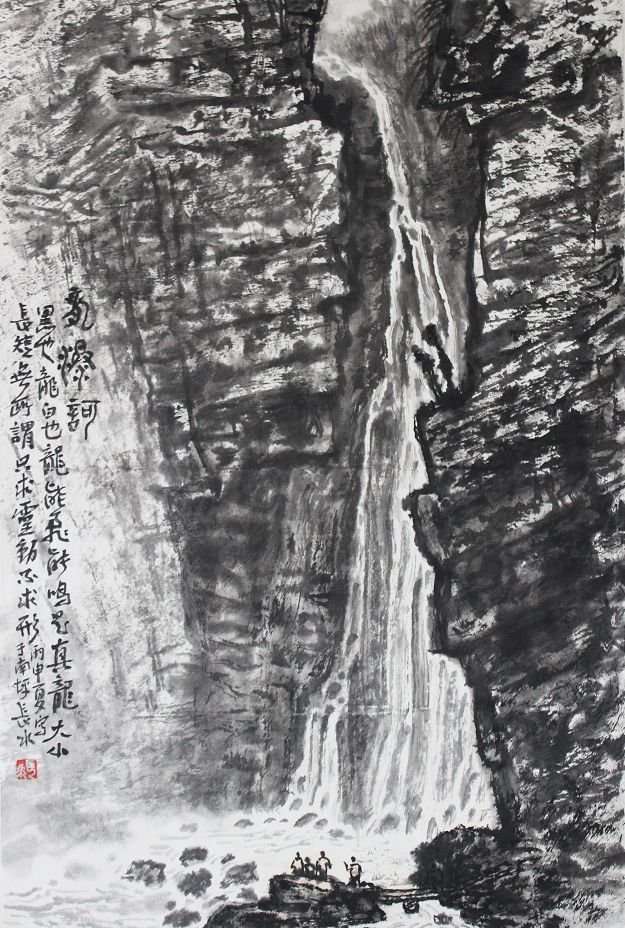 瀑
黑也龍白也龍能飛能鳴是真龍大小
長短無所謂只求靈動不求形
丙申夏写
于南長水